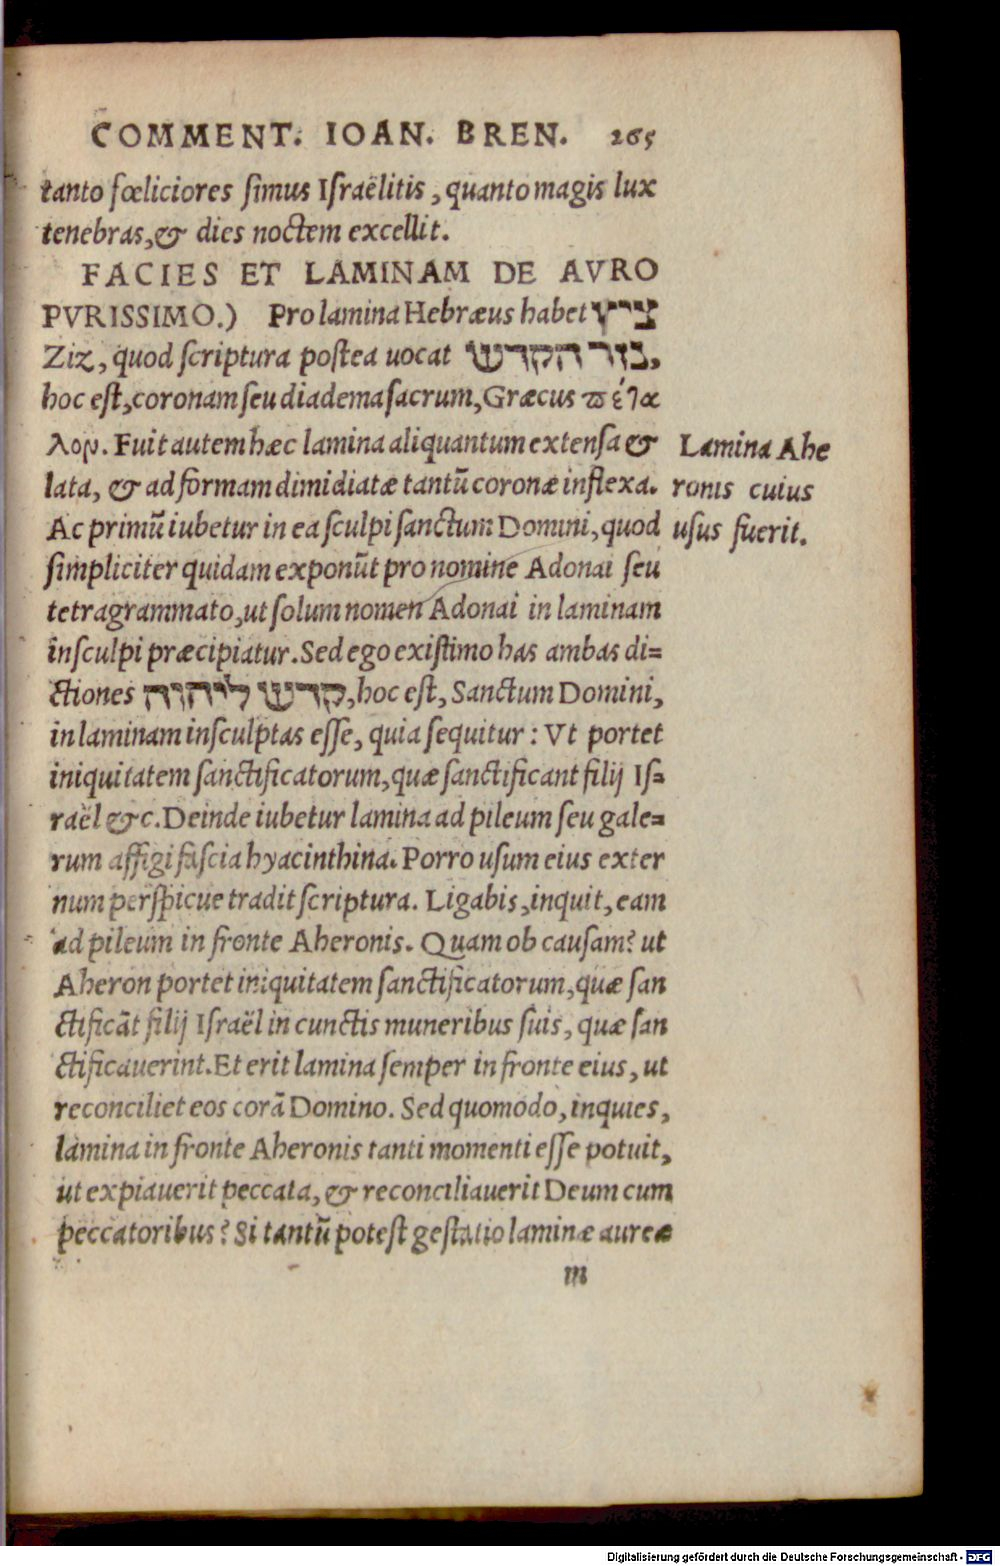 COMMENT. IOAN. BREN. 265
tanto fœliciores simus Israëlitis, quanto magis lux
tenebras, & dies noctem excellit.
FACIES ET LAMINAM DE AVRO
PVRISSIMO.) Pro lamina Hebræus habet ציץ
Ziz, quod scriptura postea uocat נזר הקדש,
hoc est, coronam seu diadema sacrum, Græcus πέτα
λον. Fuit autem hæc lamina aliquantum extensa &
lata, & ad formam dimidiatæ tantũ coronæ inflexa.
Ac primũ iubetur in ea sculpi sanctum Domini, quod
simpliciter quidam exponũt pro nomine Adonai seu
tetragrammato, ut solum nomen Adonai in laminam
insculpi præcipiatur. Sed ego existimo has ambas di=
ctiones קדש ליהוה, hoc est, Sanctum Domini,
in laminam insculptas esse, quia sequitur: Vt portet
iniquitatem sanctificatorum, quæ sanctificant filij Is=
raël &c. Deinde iubetur lamina ad pileum seu gale=
rum affigi fascia hyacinthina. Porro usum eius exter
num perspicue tradit scriptura. Ligabis, inquit, eam
ad pileum in fronte Aheronis. Quam ob causam? ut
Aheron portet iniquitatem sanctificatorum, quæ san
ctificãt filij Israël in cunctis muneribus suis, quæ san
ctificauerint. Et erit lamina semper in fronte eius, ut
reconciliet eos corã Domino. Sed quomodo, inquies,
lamina in fronte Aheronis tanti momenti esse potuit,
ut expiauerit peccata, & reconciliauerit Deum cum
peccatoribus? Si tantũ potest gestatio laminæ aureæ
m
Lamina Ahe
ronis cuius
usus fuerit.
Digitalisierung gefördert durch die Deutsche Forschungsgemeinschaft - DFG